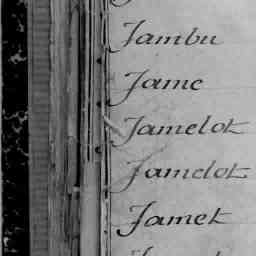 Jambu
Jame
Jamelot
Jamelot
Jamet